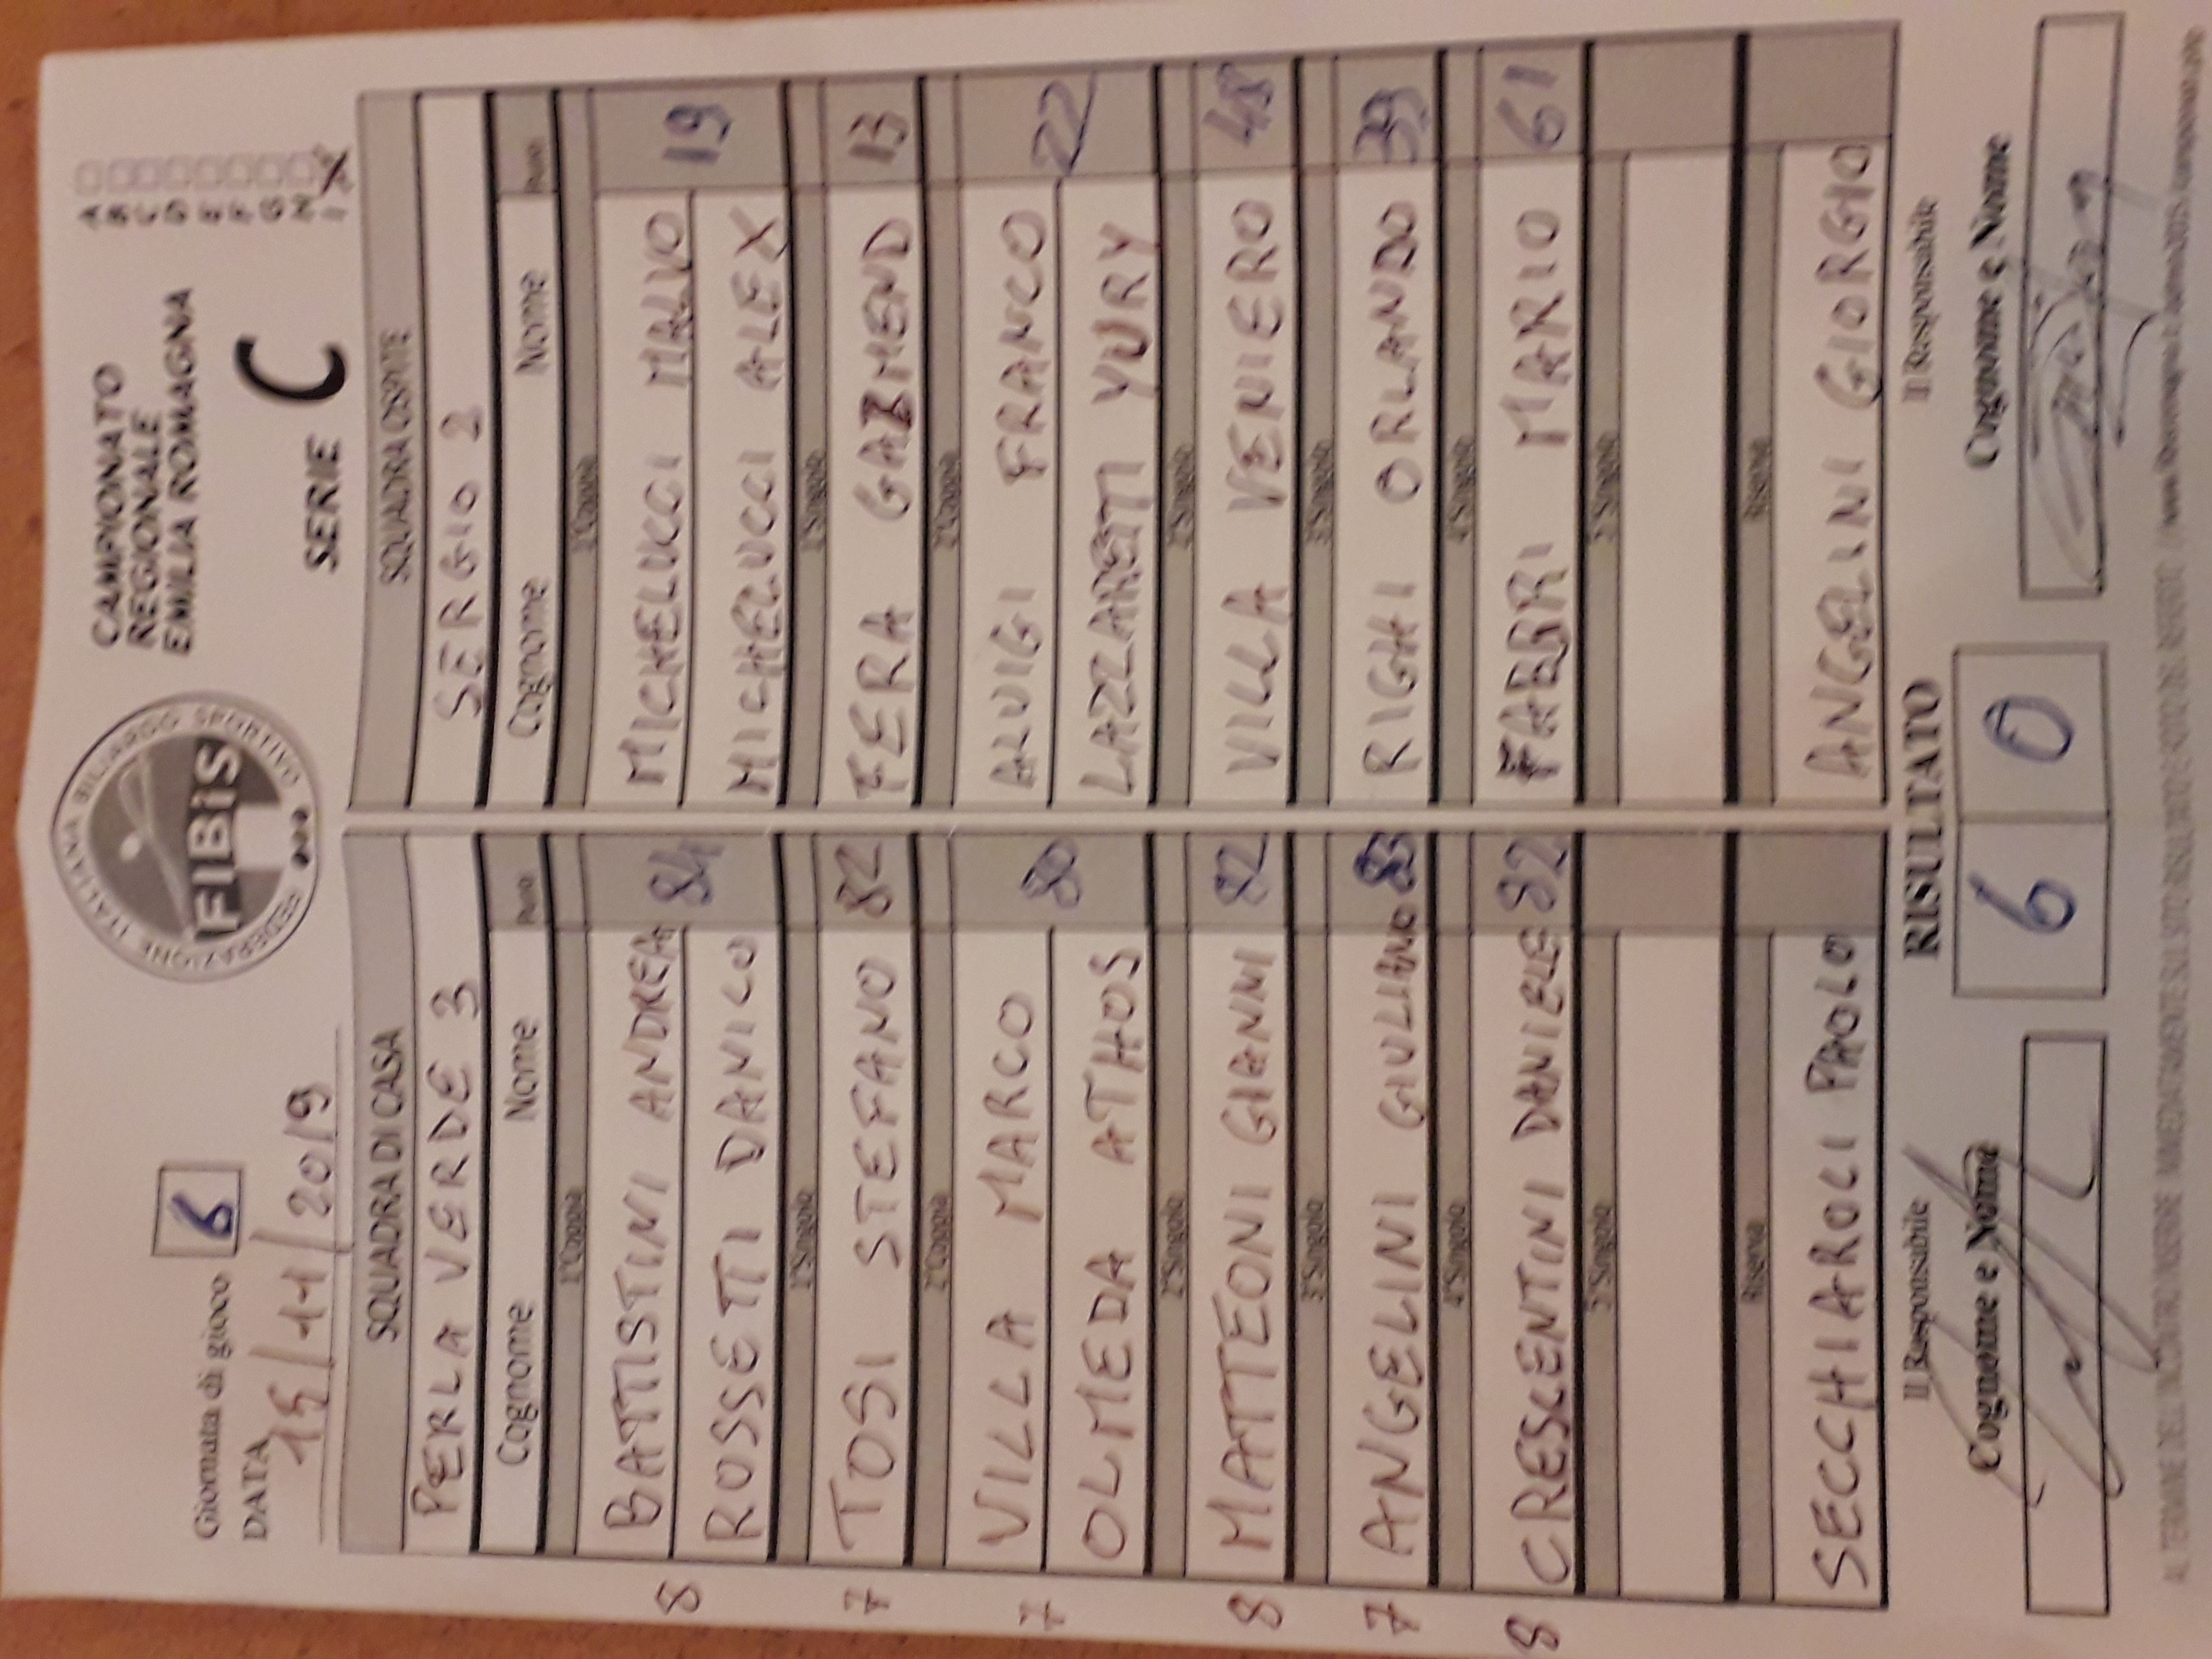 Giornata di gioco 6
DATA 15/11/2019
FEDERAZIONE ITALIANA BILIARDO SPORTIVO
FIBiS
CAMPIONATO
REGIONALE
EMILIA ROMAGNA
SERIE C
A
B
C
D
E
F
G
H
I X
SQUADRA DI CASA SQUADRA OSPITE
PERLA VERDE 3 SERGIO 2
Cognome Nome Punti Cognome Nome Punti
1°Coppia 1°Coppia
8 BATTISTINI ANDREA 84 MICHELUCCI MALVO 19
ROSSETTI DANILO MICHELUCCI ALEX
1°Singolo 1°Singolo
7 TOSI STEFANO 82 FERA GAZMEND 13
2°Coppia 2°Coppia
7 VILLA MARCO 80 ALUIGI FRANCO 22
OLMEDA ATHOS LAZZARETTI YURY
2°Singolo 2°Singolo
8 MATTEONI GIANNI 82 VILLA VENIERO 48
3°Singolo 3°Singolo
7 ANGELINI GIULIANO 83 RIGHI ORLANDO 39
4°Singolo 4°Singolo
8 CRESCENTINI DANIELE 82 FABBRI MARIO 61
5°Singolo 5°Singolo
Riserva Riserva
SECCHIAROLI PAOLO ANGELINI GIORGIO
Il Responsabile RISULTATO Il Responsabile
Cognome e Nome 6 0 Cognome e Nome
AL TERMINE DEL INCONTRO INSERIRE IMMEDIATAMENTE SUL SITO